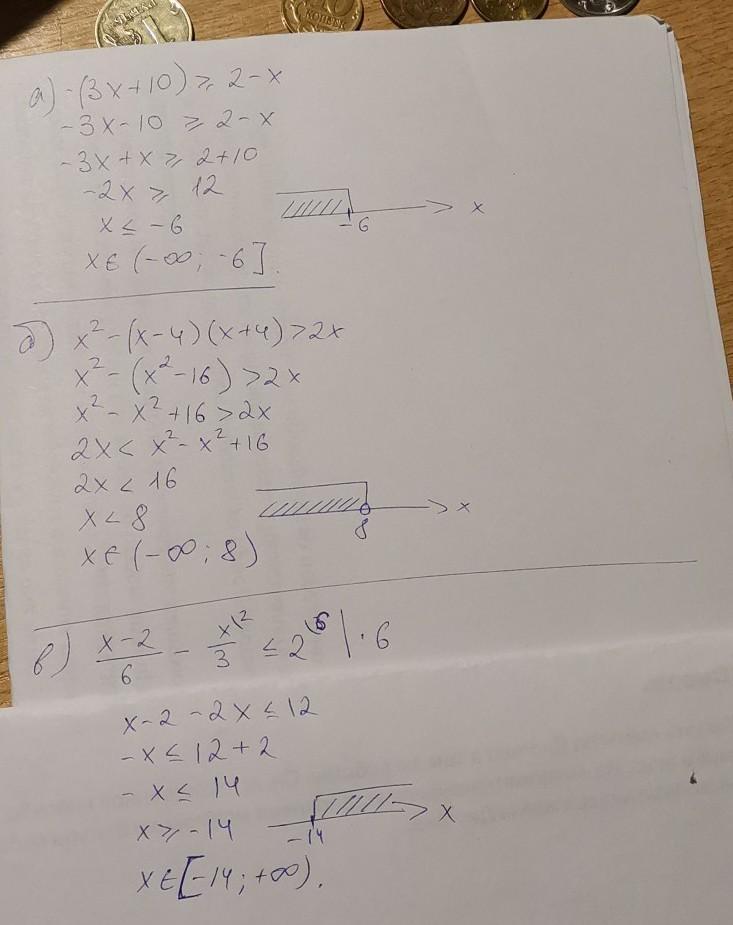 а) -(3x+10) ⩾ 2-x
-3x-10 ⩾ 2-x
-3x+x ⩾ 2+10
-2x ⩾ 12
x ≤ -6
-6 x
x ∈ (-∞; -6].
б) x²-(x-4)(x+4)>2x
x²-(x²-16)>2x
x²-x²+16>2x
2x< x²-x²+16
2x < 16
x < 8
8 x
x ∈ (-∞; 8)
в) (x-2)/6 - x\²/3 ≤ 2\⁶ | · 6
x-2-2x ≤ 12
-x ≤ 12+2
-x ≤ 14
x ⩾ -14
-14 x
x ∈ [-14; +∞).